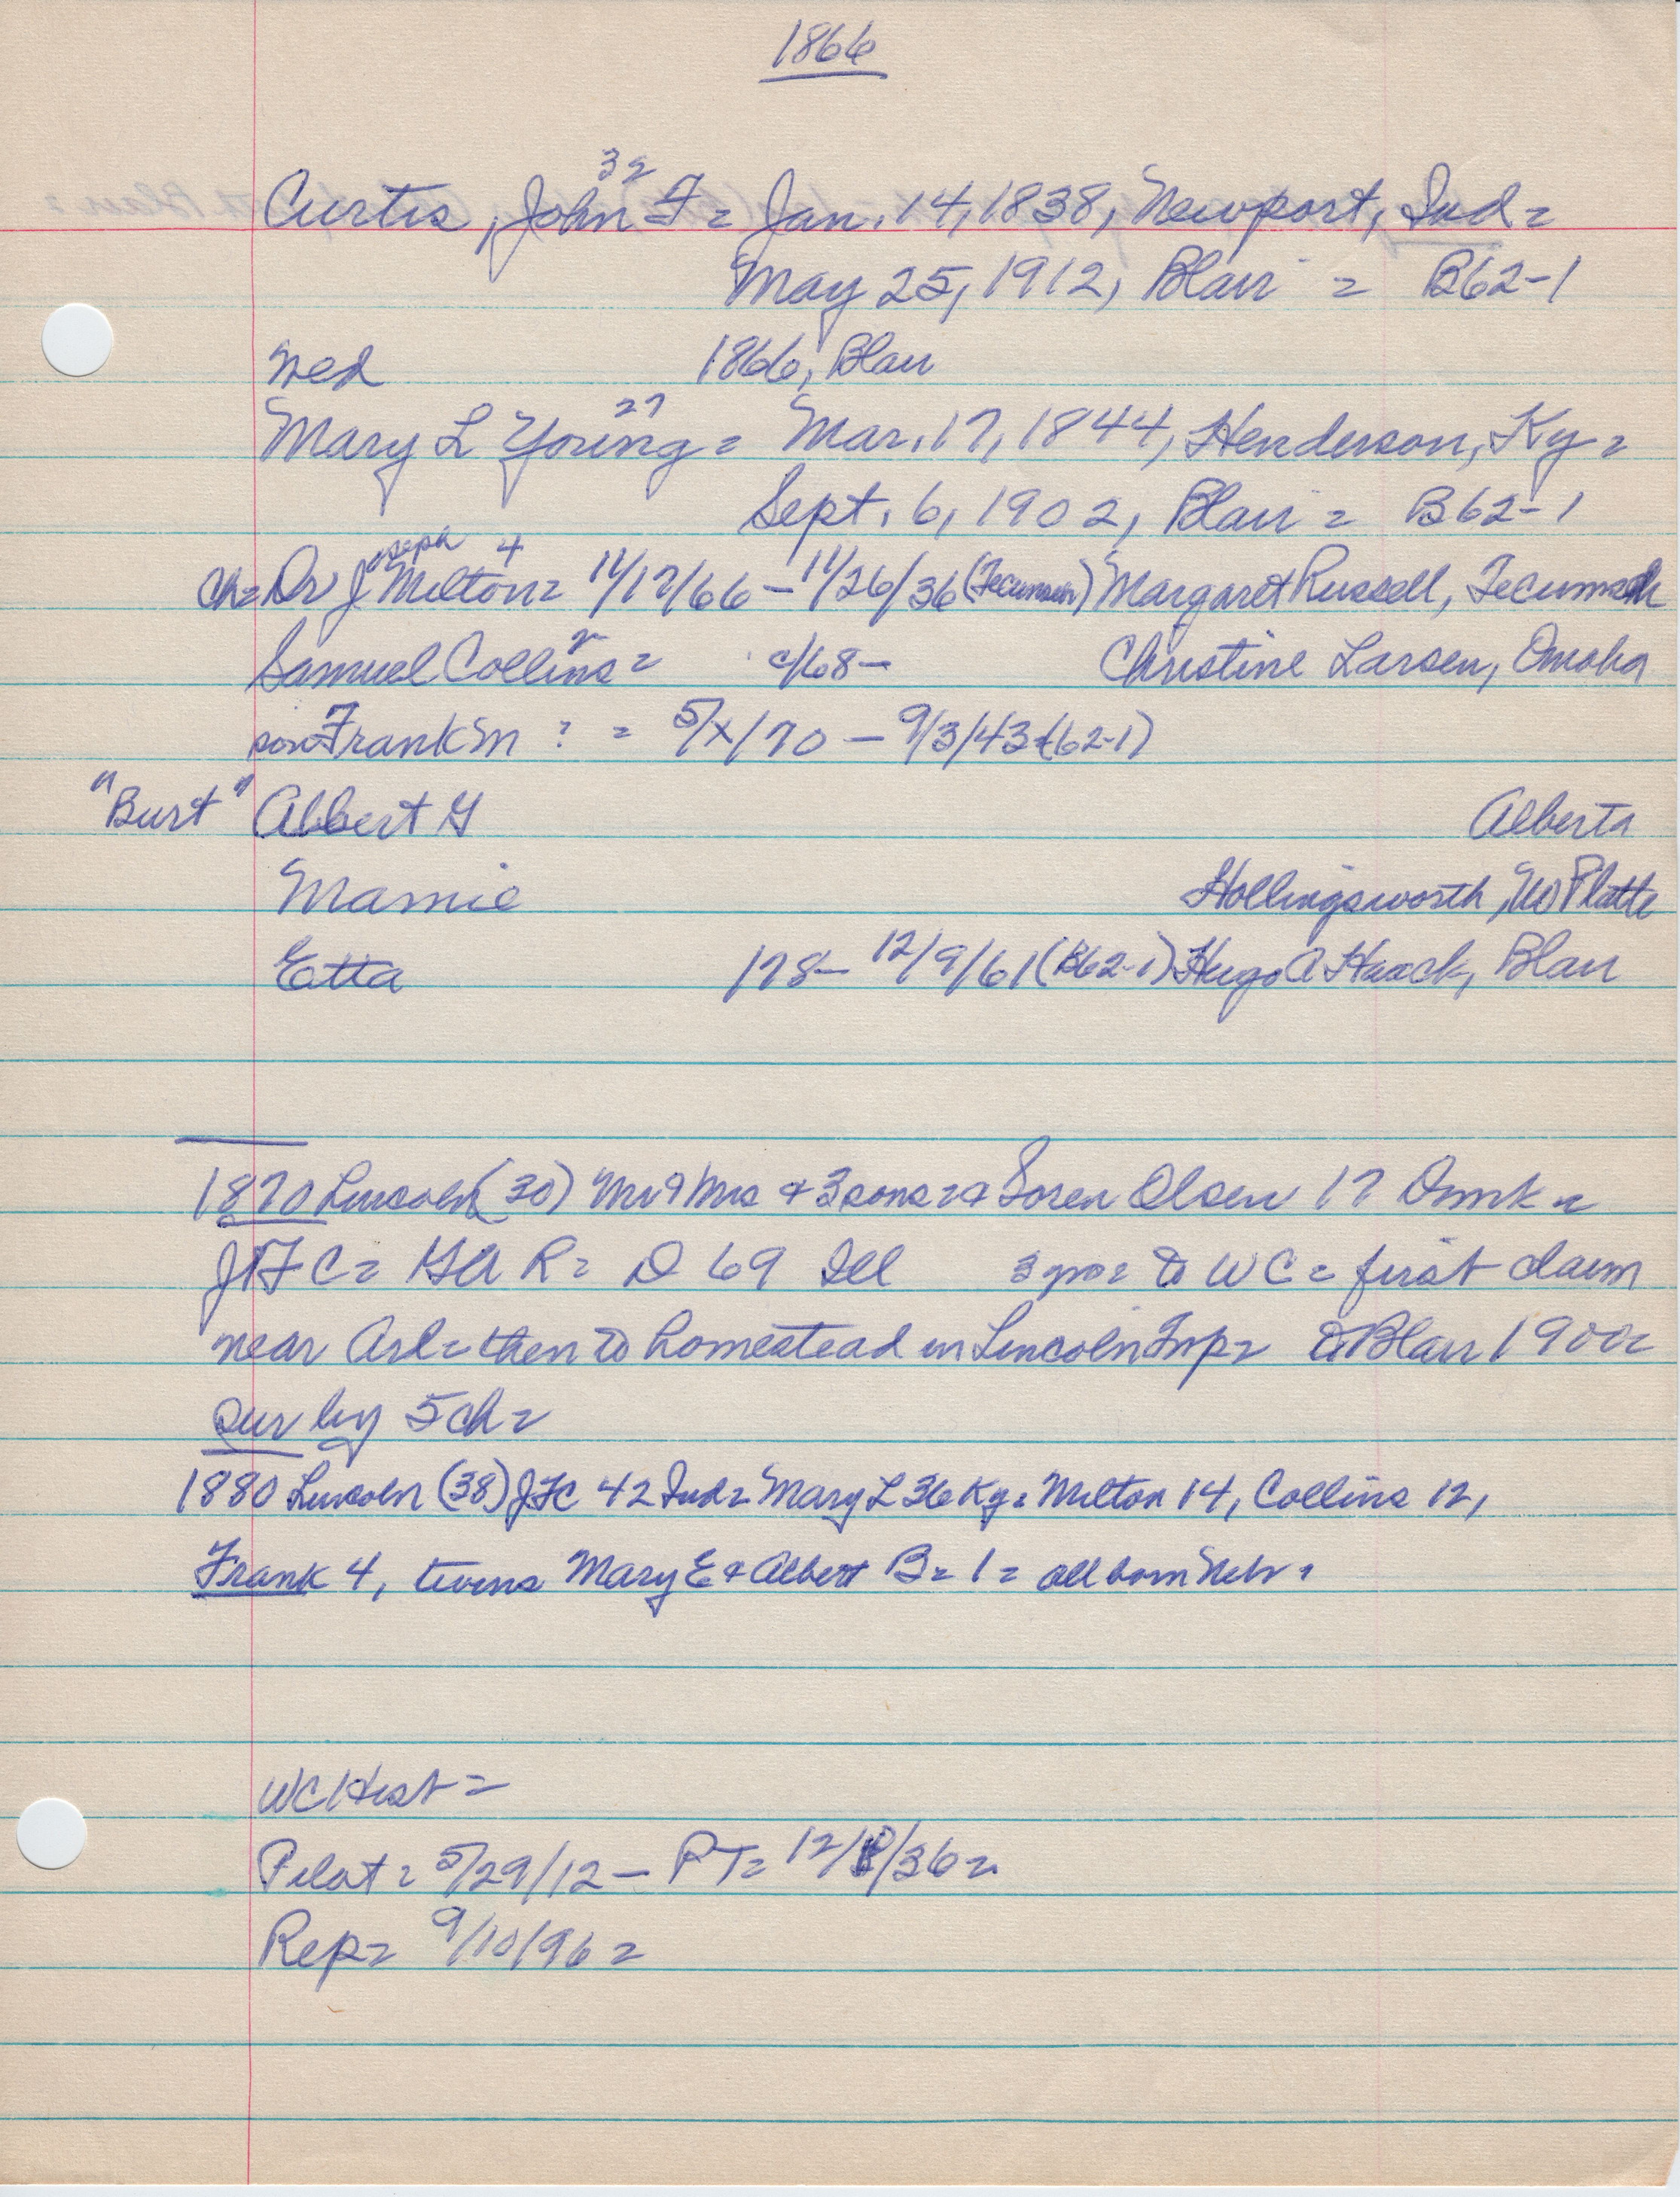 1866
32
Curtis, John F = Jan. 14, 1838, Newport, Ind =
May 25, 1912, Blair = B62-1
wed 1866, Blair
27
Mary L Young = Mar. 17, 1844, Henderson, Ky =
Sept. 6, 1902, Blair = B62-1
Ch = Dr Joseph Milton 4 = 11/17/66 - 11/26/36 (Tecumseh) Margaret Russell, Tecumseh
Samuel Collins 2 = c/68 - Christine Larsen, Omaha
son Frank M ? = 5/x/70 - 9/3/43 (62-1)
"Burt" Albert G Alberta
Mamie Hollingsworth, No Platte
Etta 178- 12/9/61 (B62-1) Hugo A Haack, Blair
1870 Lincoln (30) Mr & Mrs & 3 sons = & Soren Olsen 17 Dmk =
JFC = GAR = D 69 Ill 3 yrs = to WC = first claim
near Arl = then to homestead in Lincoln Twp = to Blair 1900 =
sur by 5 ch =
1880 Lincoln (38) JFC 42 Ind = Mary L 36 Ky = Milton 14, Collins 12,
Frank 4, twins Mary E & Albert B = 1 = all born Nebr.
WC Hist =
Pilot = 5/29/12 - PT = 12/ /36 =
Rep = 9/10/96 =